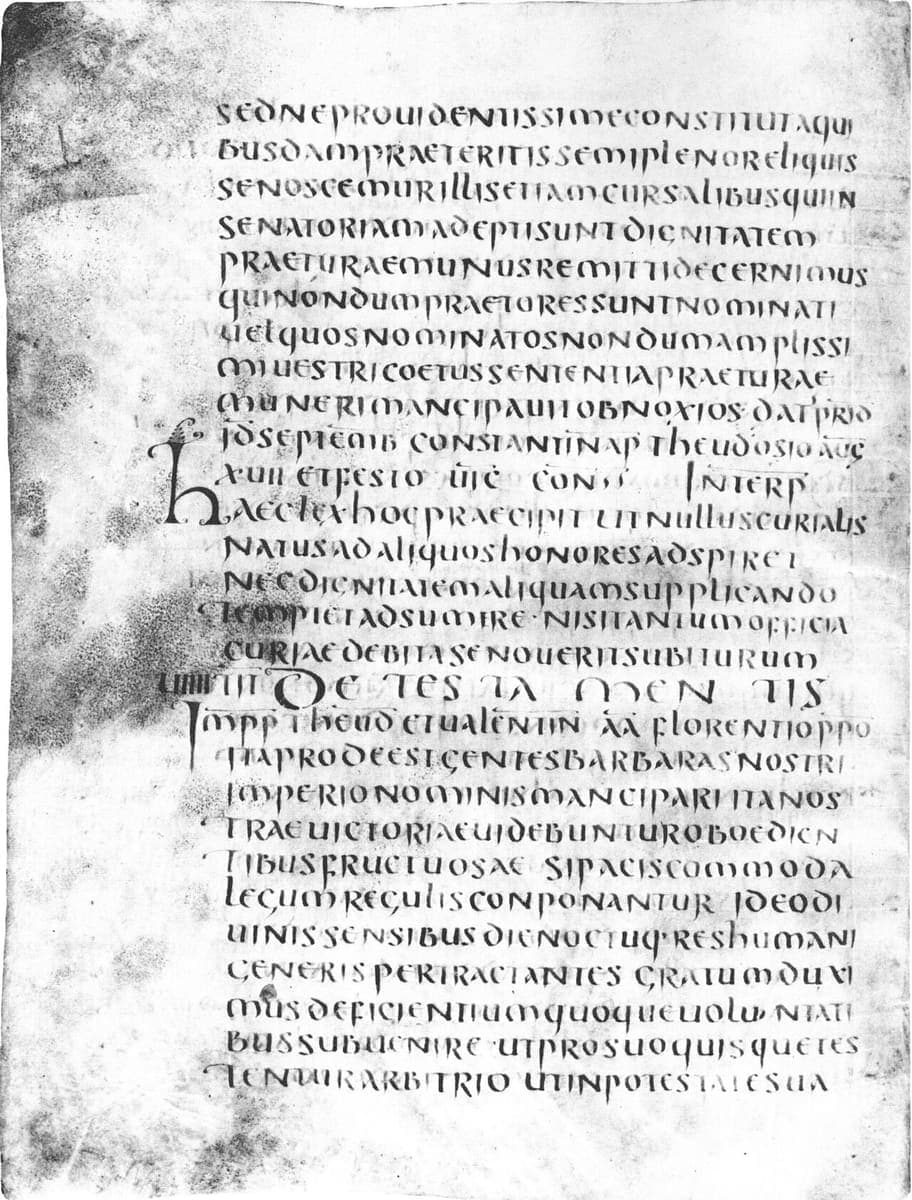 SEDNEPROUIDENTISSIMECONSTITUTAQUI
BUSDAMPRAETERITISSEMIPLENORELIQUIS
SENOSCEMURILLISETIAMCURSALIBUSQUIIN
SENATORIAMADEPTISUNTDIGNITATEM
PRAETURAEMUNUSREMITTIDECERNIMUS
QUINONDUMPRAETORESSUNTNOMINATI
UELQUOSNOMINATOSNONDUMAMPLISSI
MIUESTRICOETUSSENTENTIAPRAETURAE
MUNERIMANCIPAUITOBNOXIOS· DAT PRID
IDSEPTEMB CONSTANTINAP THEUDOSIO AUG
XUII ETFESTO UC CON INTERP
HAECLEXHOCPRAECIPIT UTNULLUSCURIALIS
NATUSADALIQUOSHONORESADSPIRET
NECDIGNITATEMALIQUAMSUPPLICANDO
TEMPTETADSUMERE · NISITANTUMOFFICIA
CURIAEDEBITASENOUERITSUBITURUM
TIT DE TESTAMENTIS
IMPP THEUD ETUALENTIN AA FLORENTIO PPO
ITAPRODEESTGENTESBARBARASNOSTRI
IMPERIONOMINISMANCIPARI ITANOS
TRAEUICTORIAEUIDEBUNTUROBOEDIEN
TIBUSFRUCTUOSAE SIPACISCOMMODA
LEGUMREGULISCONPONANTUR IDEODI
UINISSENSIBUSDIENOCTUQ·RESHUMANI
GENERISPERTRACTANTES GRATUMDUXI
MUSDEFICIENTIUMQUOQUEUOLUNTATI
BUSSUBUENIRE ·UTPROSUOQUISQUETES
TENTURARBITRIO UTINPOTESTATESUA